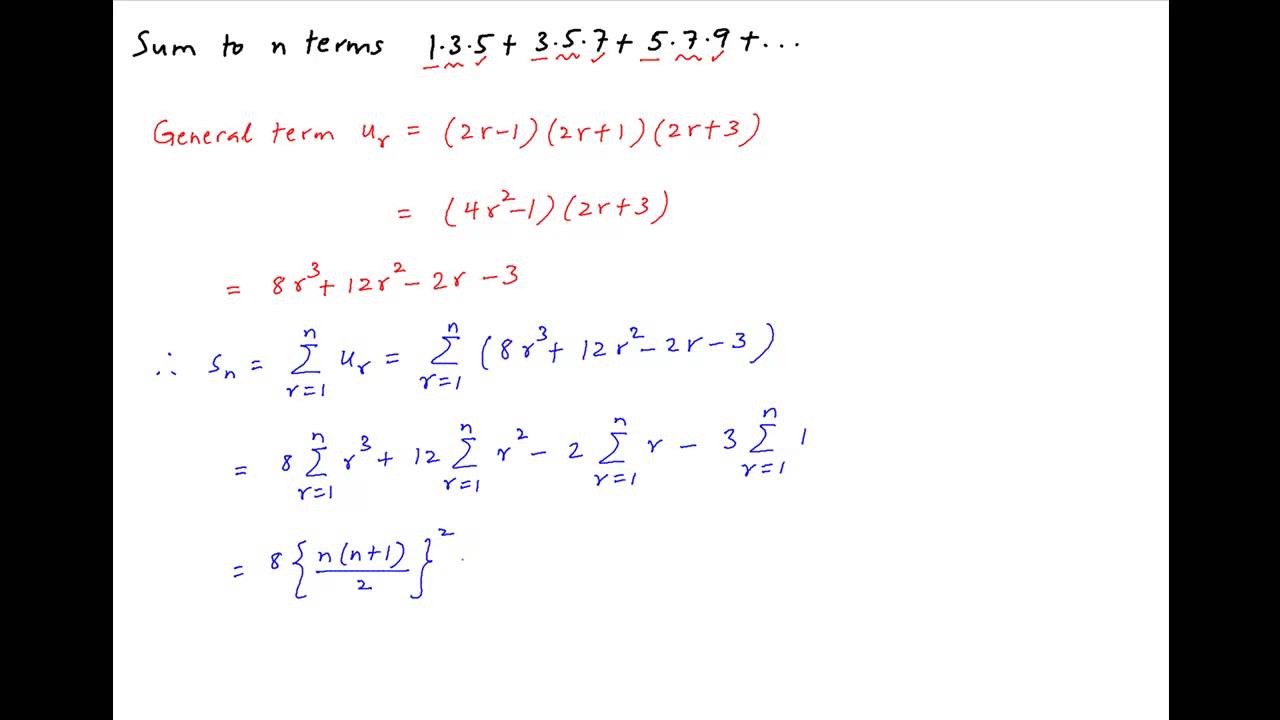 Sum to n terms 1·3·5 + 3·5·7 + 5·7·9 + ...
General term uᵣ = (2r-1)(2r+1)(2r+3)
= (4r²-1)(2r+3)
= 8r³ + 12r² - 2r - 3
∴ Sₙ = ∑_{r=1}^{n} uᵣ = ∑_{r=1}^{n} (8r³ + 12r² - 2r - 3)
= 8 ∑_{r=1}^{n} r³ + 12 ∑_{r=1}^{n} r² - 2 ∑_{r=1}^{n} r - 3 ∑_{r=1}^{n} 1
= 8 { n(n+1)/2 }²